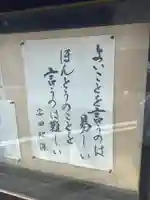 よいことを言うのは
易しい
ほんとうのことを
言うのは難しい
安田